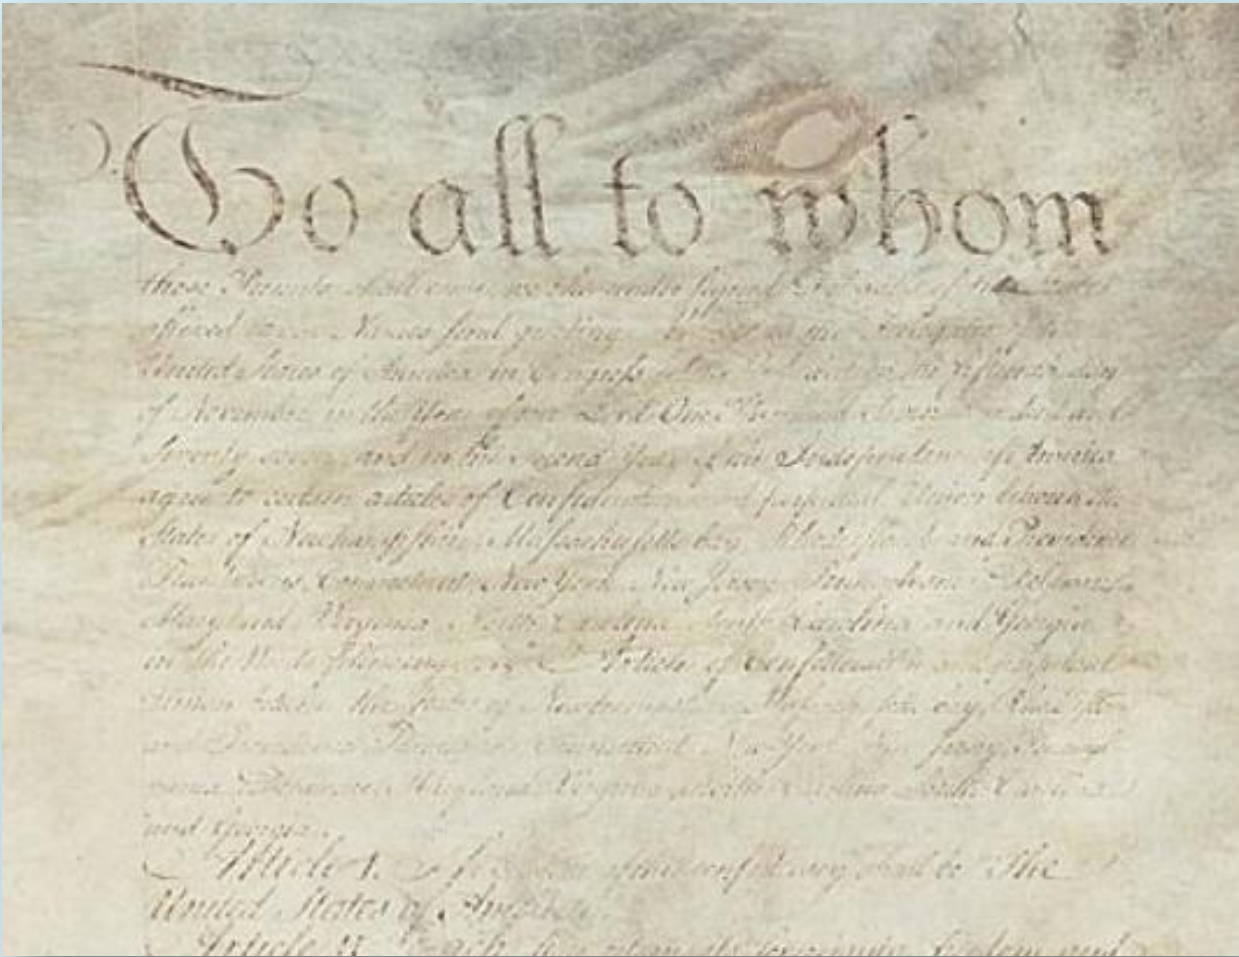 To all to whom
these Presents shall come, we the under signed Delegates of the States
affixed to our Names send greeting. Whereas the Delegates of the
United States of America in Congress assembled did on the fifteenth day
of November in the Year of our Lord One Thousand Seven Hundred and
Seventy seven, and in the Second Year of the Independence of America
agree to certain articles of Confederation and perpetual Union between the
States of Newhampshire, Massachusetts-bay, Rhodeisland and Providence
Plantations, Connecticut, New York, New Jersey, Pennsylvania, Delaware,
Maryland, Virginia, North Carolina, South Carolina and Georgia
in the Words following, viz. Articles of Confederation and perpetual
Union between the States of Newhampshire, Massachusetts-bay, Rhodeisland
and Providence Plantations, Connecticut, New York, New Jersey, Pennsyl-
vania, Delaware, Maryland, Virginia, North Carolina, South Carolina
and Georgia.
Article I. The Stile of this confederacy shall be "The
United States of America."
Article II. Each state retains its sovereignty, freedom and